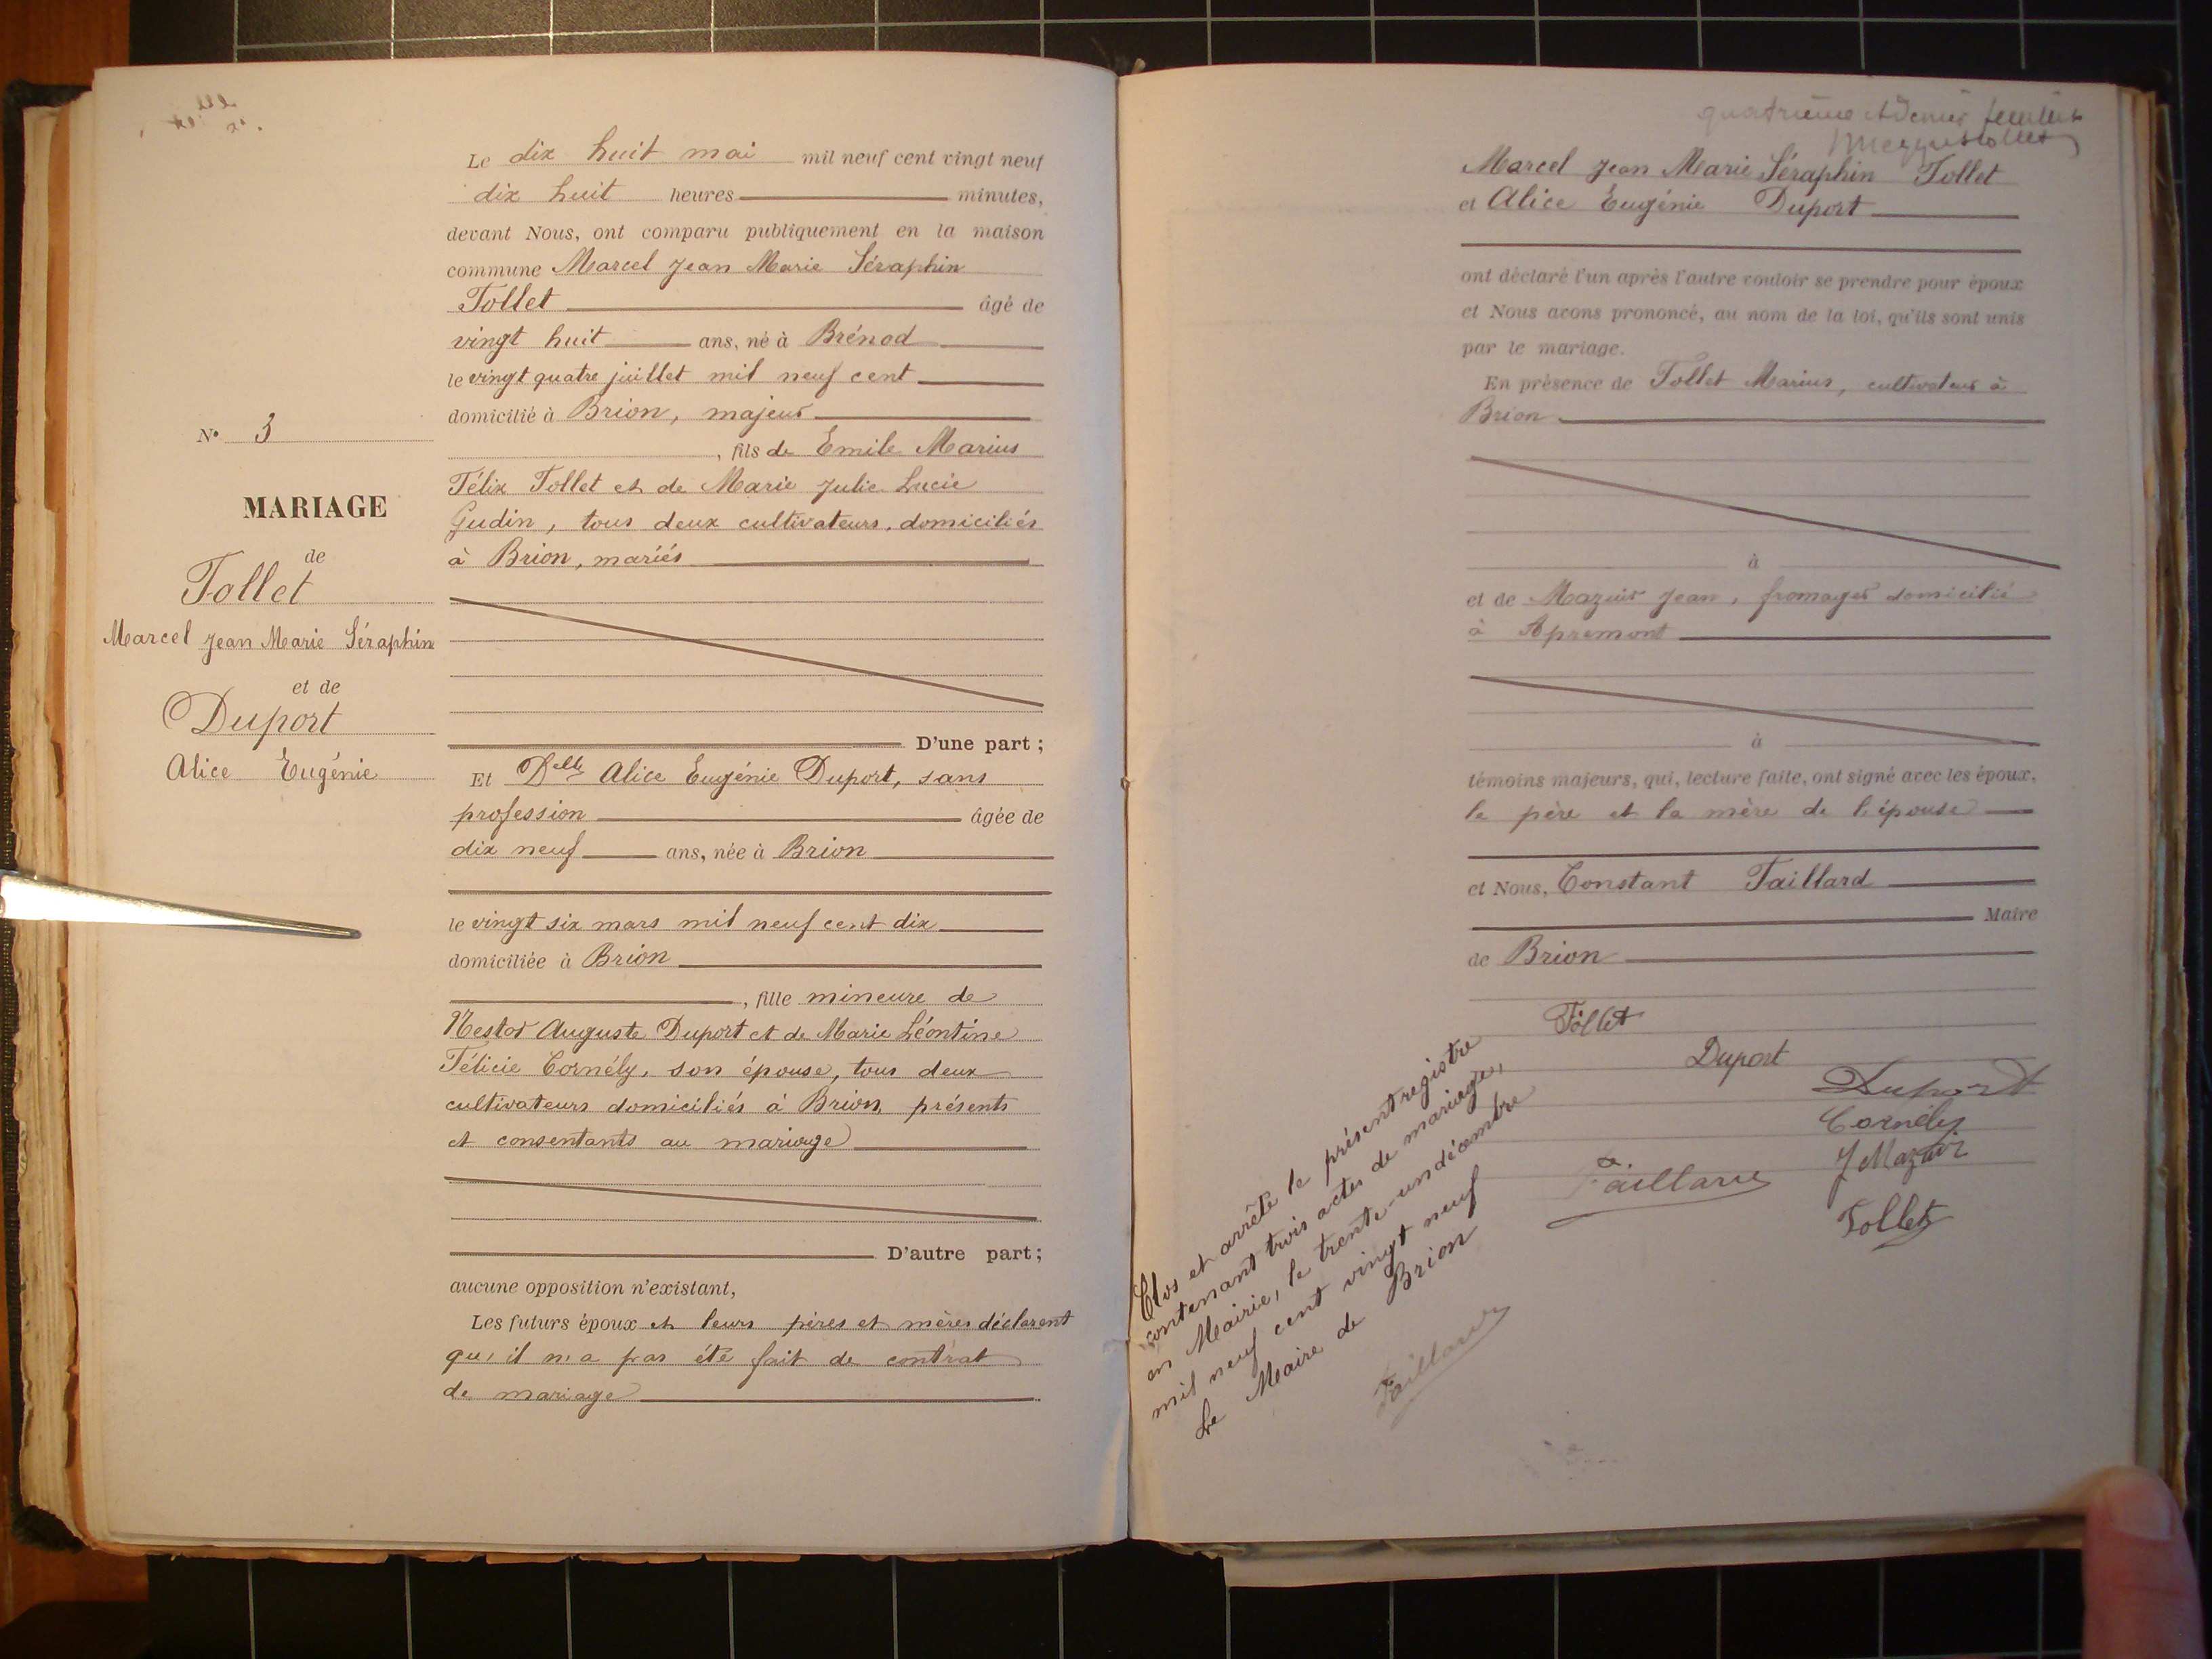 N° 3
MARIAGE
de
Tollet
Marcel Jean Marie Séraphin
et de
Duport
Alice Eugénie
Le dix huit mai mil neuf cent vingt neuf
dix huit heures minutes,
devant Nous, ont comparu publiquement en la maison
commune Marcel Jean Marie Séraphin
Tollet âgé de
vingt huit ans, né à Brénod
le vingt quatre juillet mil neuf cent
domicilié à Brion, majeur
, fils de Emile Marius
Félix Tollet et de Marie Julie Lucie
Gudin, tous deux cultivateurs, domiciliés
à Brion, mariés
D'une part ;
Et Delle Alice Eugénie Duport, sans
profession âgée de
dix neuf ans, née à Brion
le vingt six mars mil neuf cent dix
domiciliée à Brion
, fille mineure de
Nestor Auguste Duport et de Marie Léontine
Félicie Cornély, son épouse, tous deux
cultivateurs domiciliés à Brion, présents
et consentants au mariage
D'autre part ;
aucune opposition n'existant,
Les futurs époux et leurs pères et mères déclarent
qu'il n'a pas été fait de contrat
de mariage
quatrième et dernier feuillet
Marcel Jean Marie Séraphin Tollet
et Alice Eugénie Duport
ont déclaré l'un après l'autre vouloir se prendre pour époux
et Nous avons prononcé, au nom de la loi, qu'ils sont unis
par le mariage.
En présence de Tollet Marius, cultivateur à
Brion
à
et de Mazuir Jean, fromager domicilié
à Apremont
à
témoins majeurs, qui, lecture faite, ont signé avec les époux,
le père et la mère de l'épouse
et Nous, Constant Taillard
Maire
de Brion
Tollet
Duport
Duport
Cornély
J Mazuir
Taillard
Tollet
Clos et arrêté le présent registre
contenant trois actes de mariage,
en Mairie, le trente-un décembre
mil neuf cent vingt neuf
Le Maire de Brion
Taillard